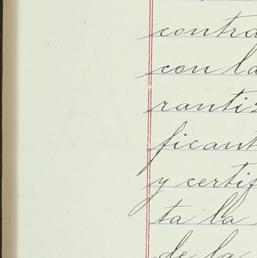 contra
con la
ranti
ficant
y certif
ta la
de la